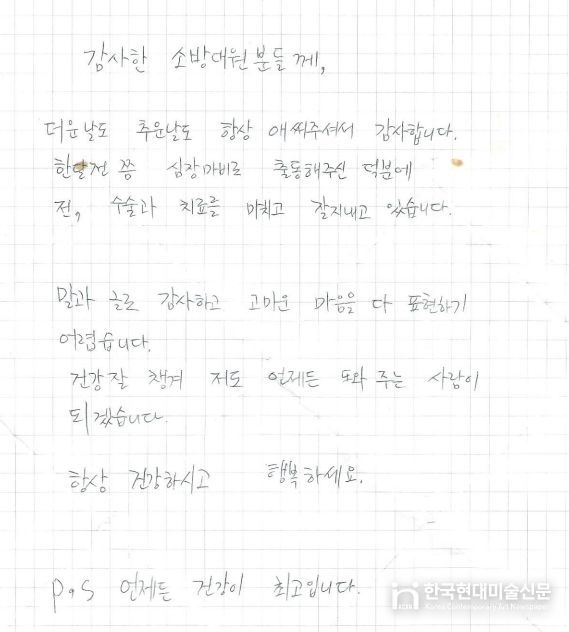 감사한 소방대원분들께,
더운날도 추운날도 항상 애써주셔서 감사합니다.
한달전 쯤 심장마비로 출동해주신 덕분에
전, 수술과 치료를 마치고 잘지내고 있습니다.
말과 글로 감사하고 고마운 마음을 다 표현하기
어렵습니다.
건강 잘 챙겨 저도 언제든 도와 주는 사람이
되겠습니다.
항상 건강하시고 행복하세요.
p.s 언제든 건강이 최고입니다.
한국현대미술신문
Korea Contemporary Art Newspaper